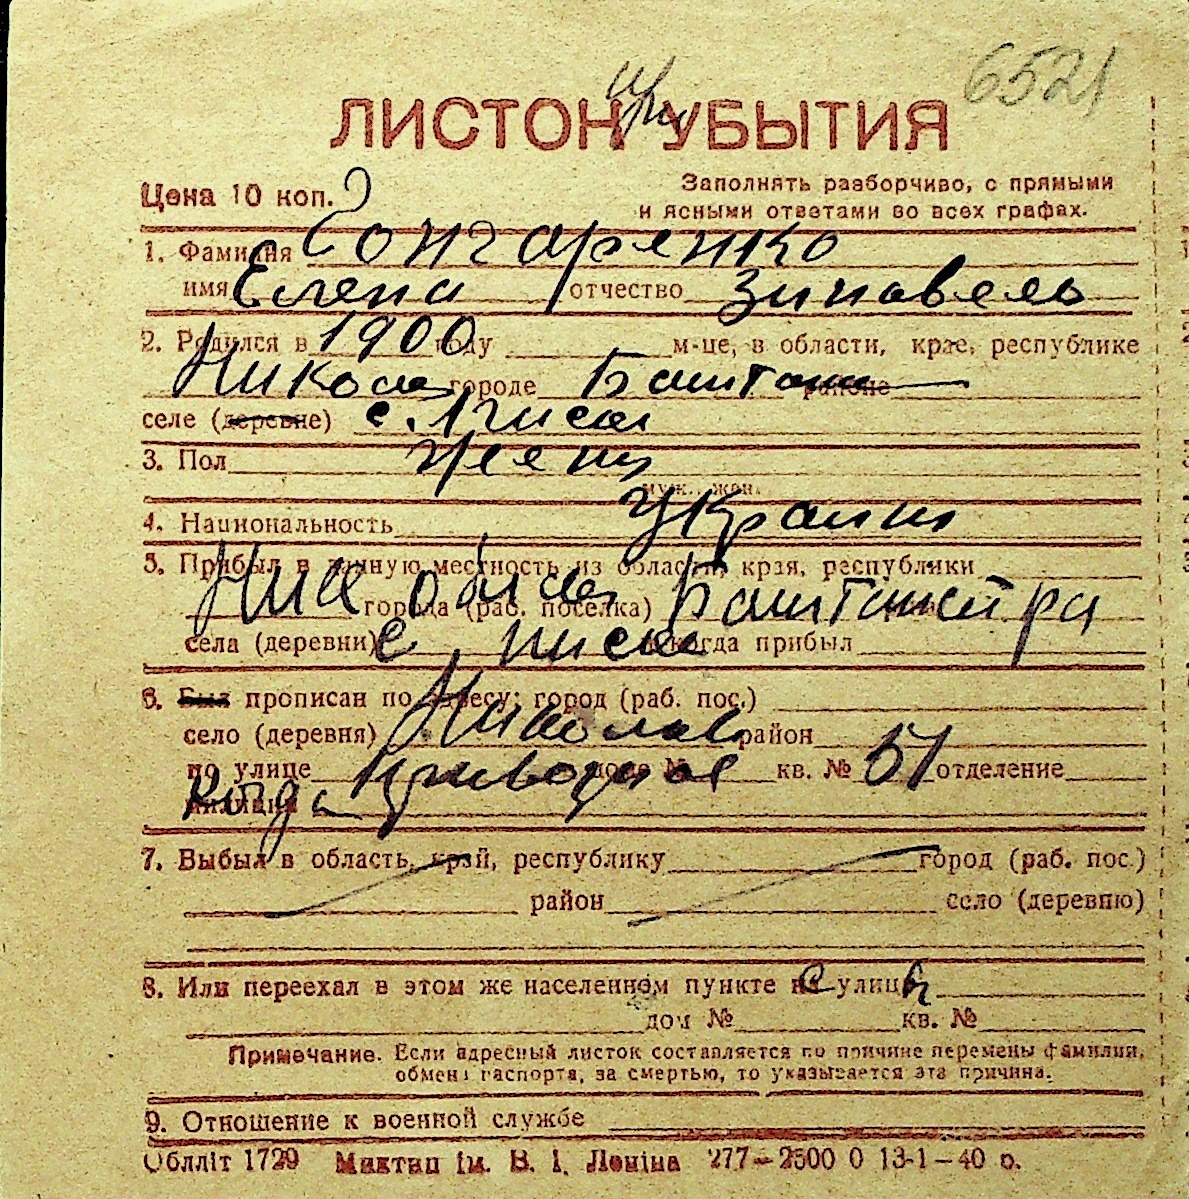 6521
при
ЛИСТОК УБЫТИЯ
Цена 10 коп.
Заполнять разборчиво, с прямыми
и ясными ответами во всех графах.
1. Фамилия Гончаренко
имя Елена отчество Зиновеевь
2. Родился в 1900 году м-це, в области, крае, республике
Никола городе Баштан районе
селе (деревне) с.
3. Пол Женщ
муж. жен.
4. Национальность Украин
5. Прибыл в данную местность из области, края, республики
Ник обл города (раб. поселка) Баштанск р-на
села (деревни) с и когда прибыл
6. Был прописан по адресу: город (раб. пос.)
село (деревня) Николаев район
по улице доме № кв. № 51 отделение
милиции Когда
7. Выбыл в область, край, республику город (раб. пос.)
район село (деревню)
8. Или переехал в этом же населенном пункте на улицу
дом № кв. №
Примечание. Если адресный листок составляется по причине перемены фамилии,
обмена паспорта, за смертью, то указывается эта причина.
9. Отношение к военной службе
Облліт 1729 Мактип ім. В. І. Леніна 277—2500 0 13-1—40 р.